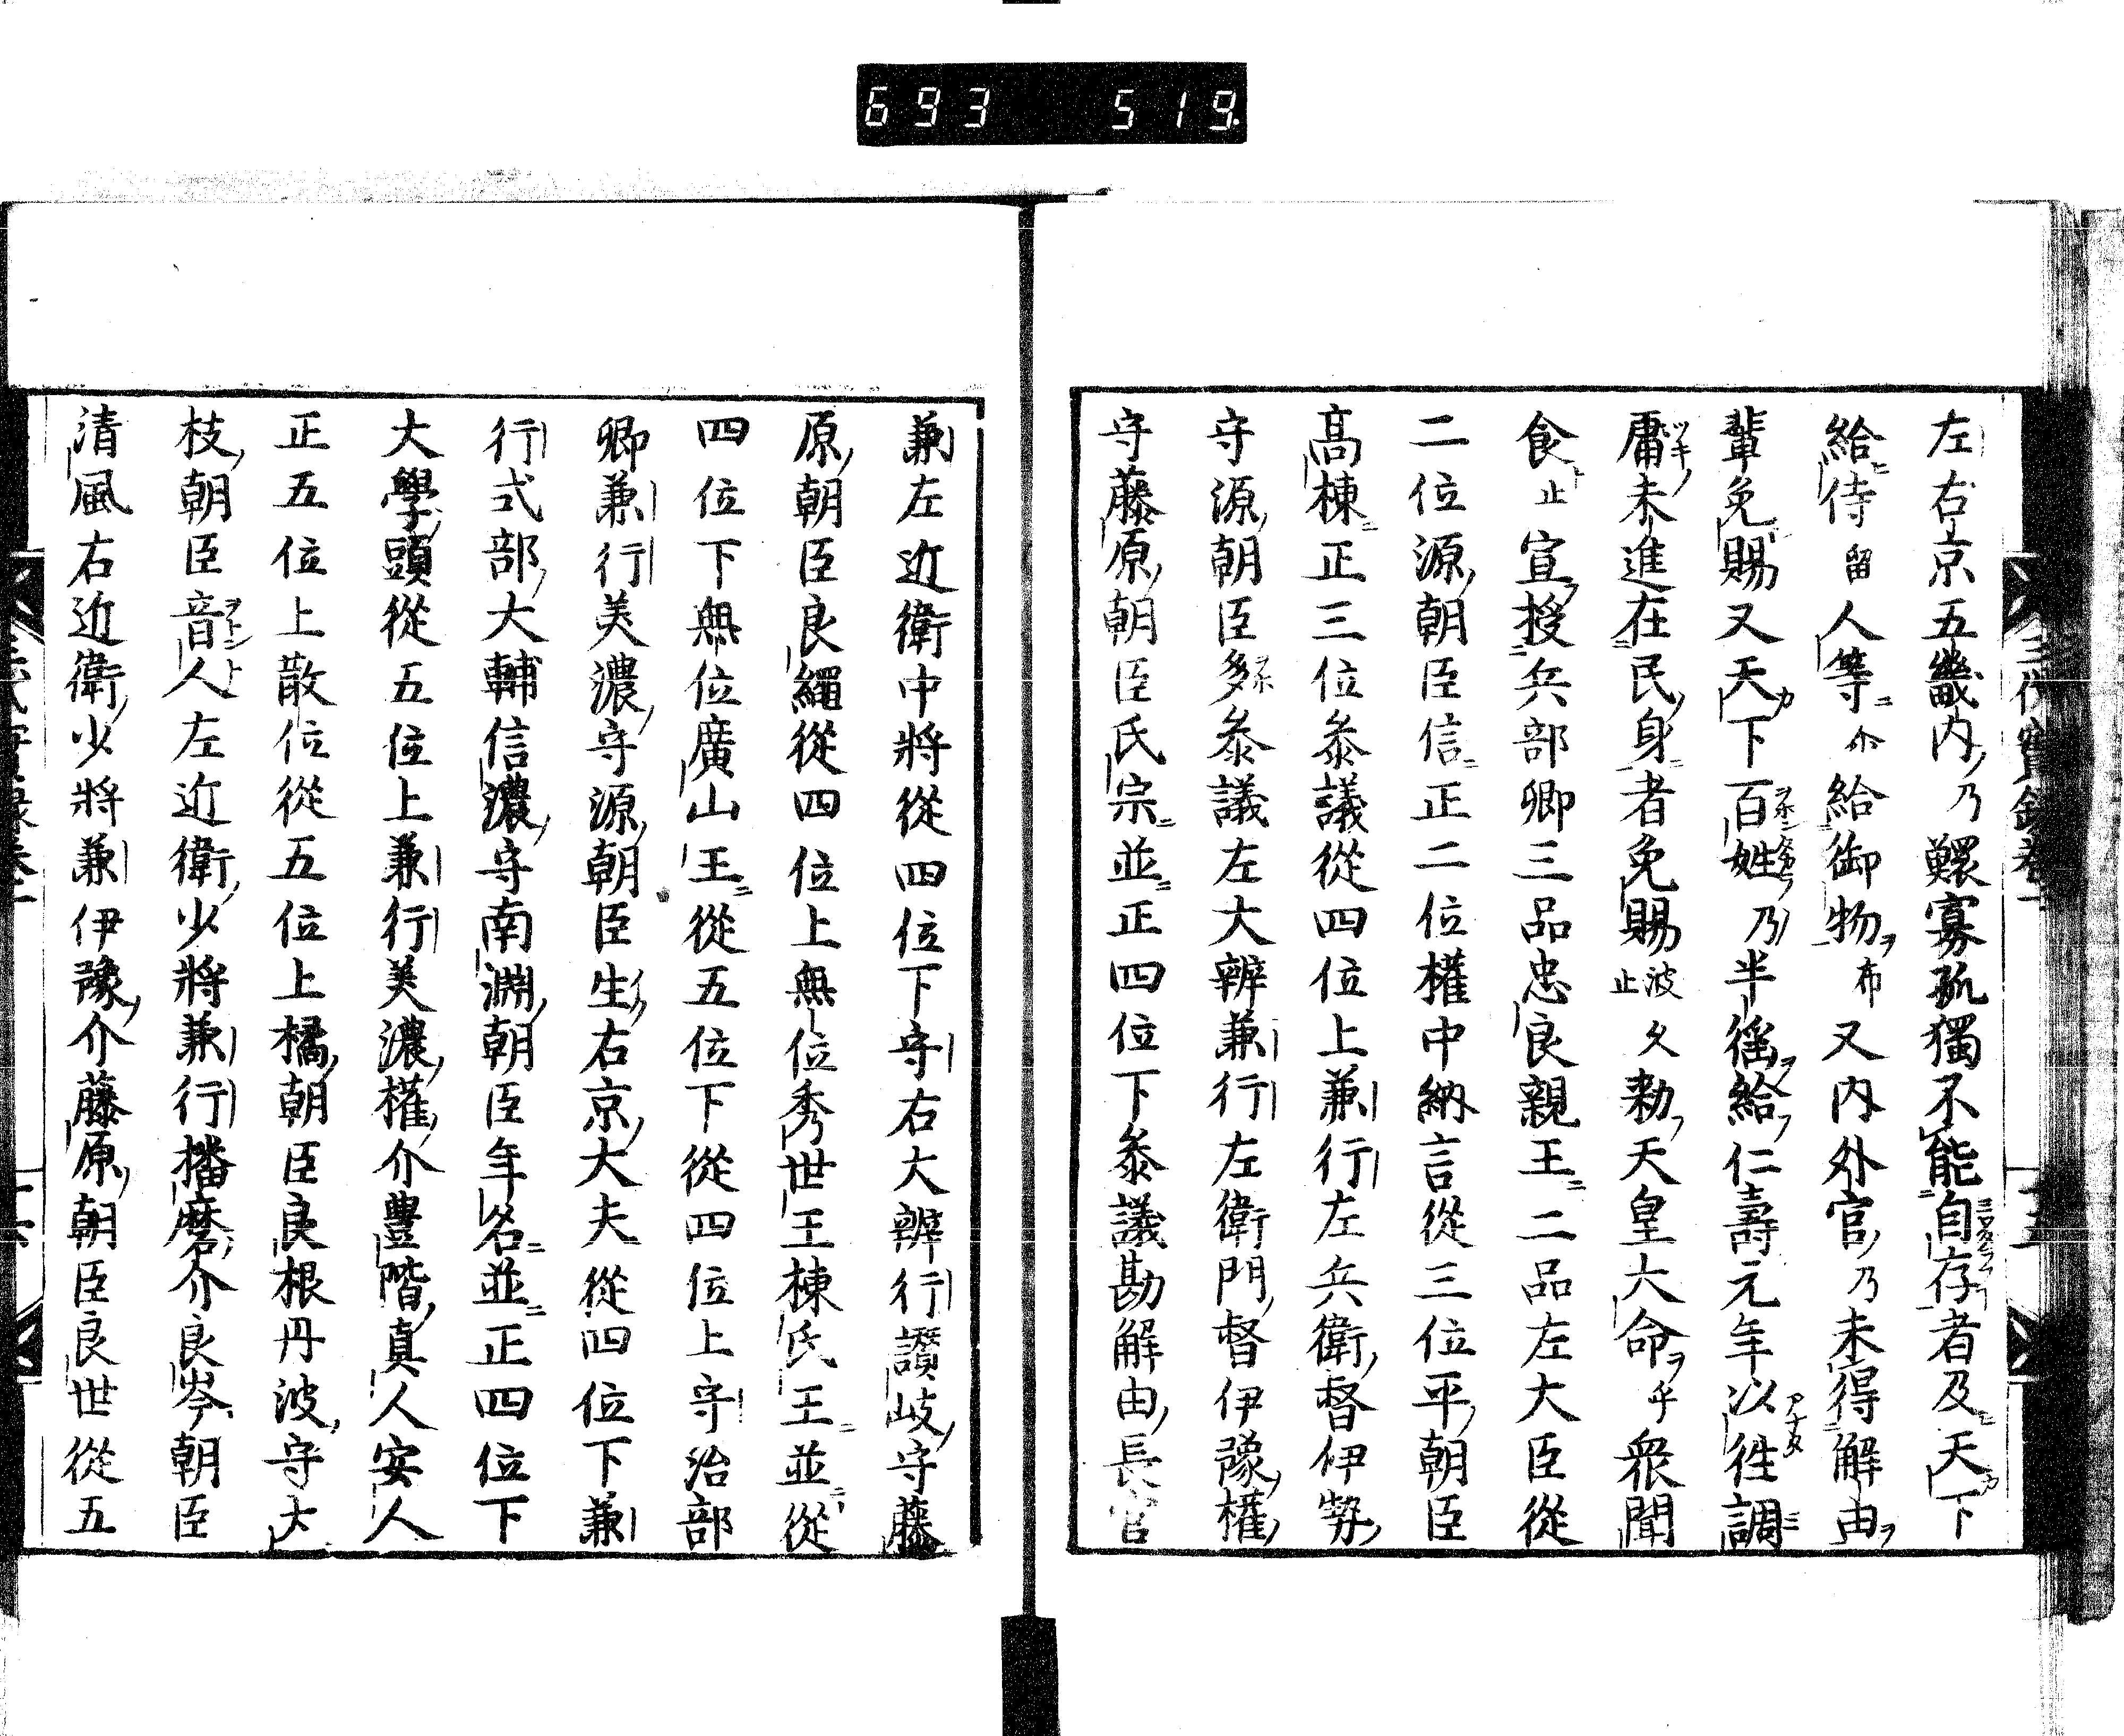 693 519.
左右京五畿内乃鰥寡孤獨不能自存者及天下
給侍留人等尒給御物布又内外官乃未得解由
輩免賜又天下百姓乃半徭給仁壽元年以徃調
庸未進在民身者免賜波久止勅天皇大命乎衆聞
食止宣授兵部卿三品忠良親王二品左大臣從
二位源朝臣信正二位權中納言從三位平朝臣
髙棟正三位叅議從四位上兼行左兵衛督伊勢
守源朝臣多叅議左大辨兼行左衛門督伊豫權
守藤原朝臣氏宗並正四位下叅議勘解由長官
兼左近衛中將從四位下守右大辨行讃岐守藤
原朝臣良繩從四位上無位秀世王棟氏王並從
四位下無位廣山王從五位下從四位上守治部
卿兼行美濃守源朝臣生右京大夫從四位下兼
行式部大輔信濃守南淵朝臣年名並正四位下
大學頭從五位上兼行美濃權介豊階真人安人
正五位上散位從五位上橘朝臣良根丹波守大
枝朝臣音人左近衛少將兼行播磨介良岑朝臣
清風右近衛少將兼伊豫介藤原朝臣良世從五